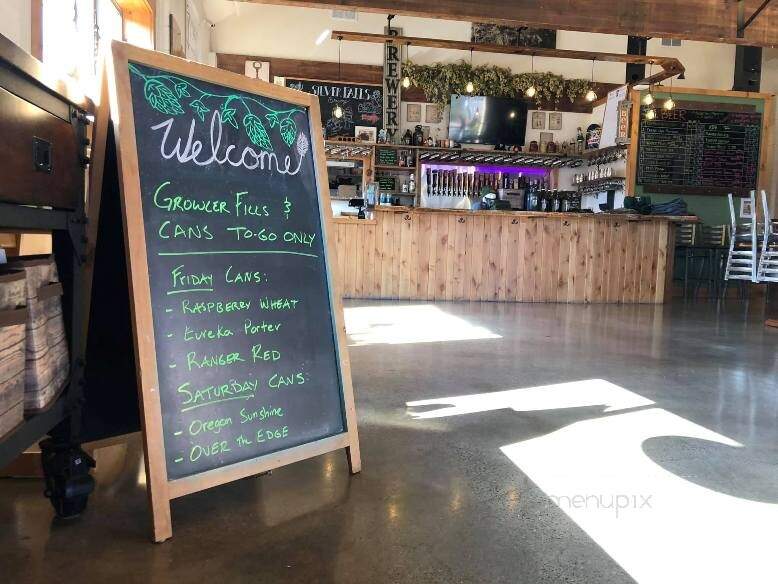 Welcome
GROWLER FILLS &
CANS TO-GO ONLY
FRIDAY CANS:
- RASPBERRY WHEAT
- Eureka Porter
- RANGER RED
SATURDAY CANS:
- Oregon Sunshine
- OVER The EDGE
SILVER FALLS
BREWERY
BEER
menupix